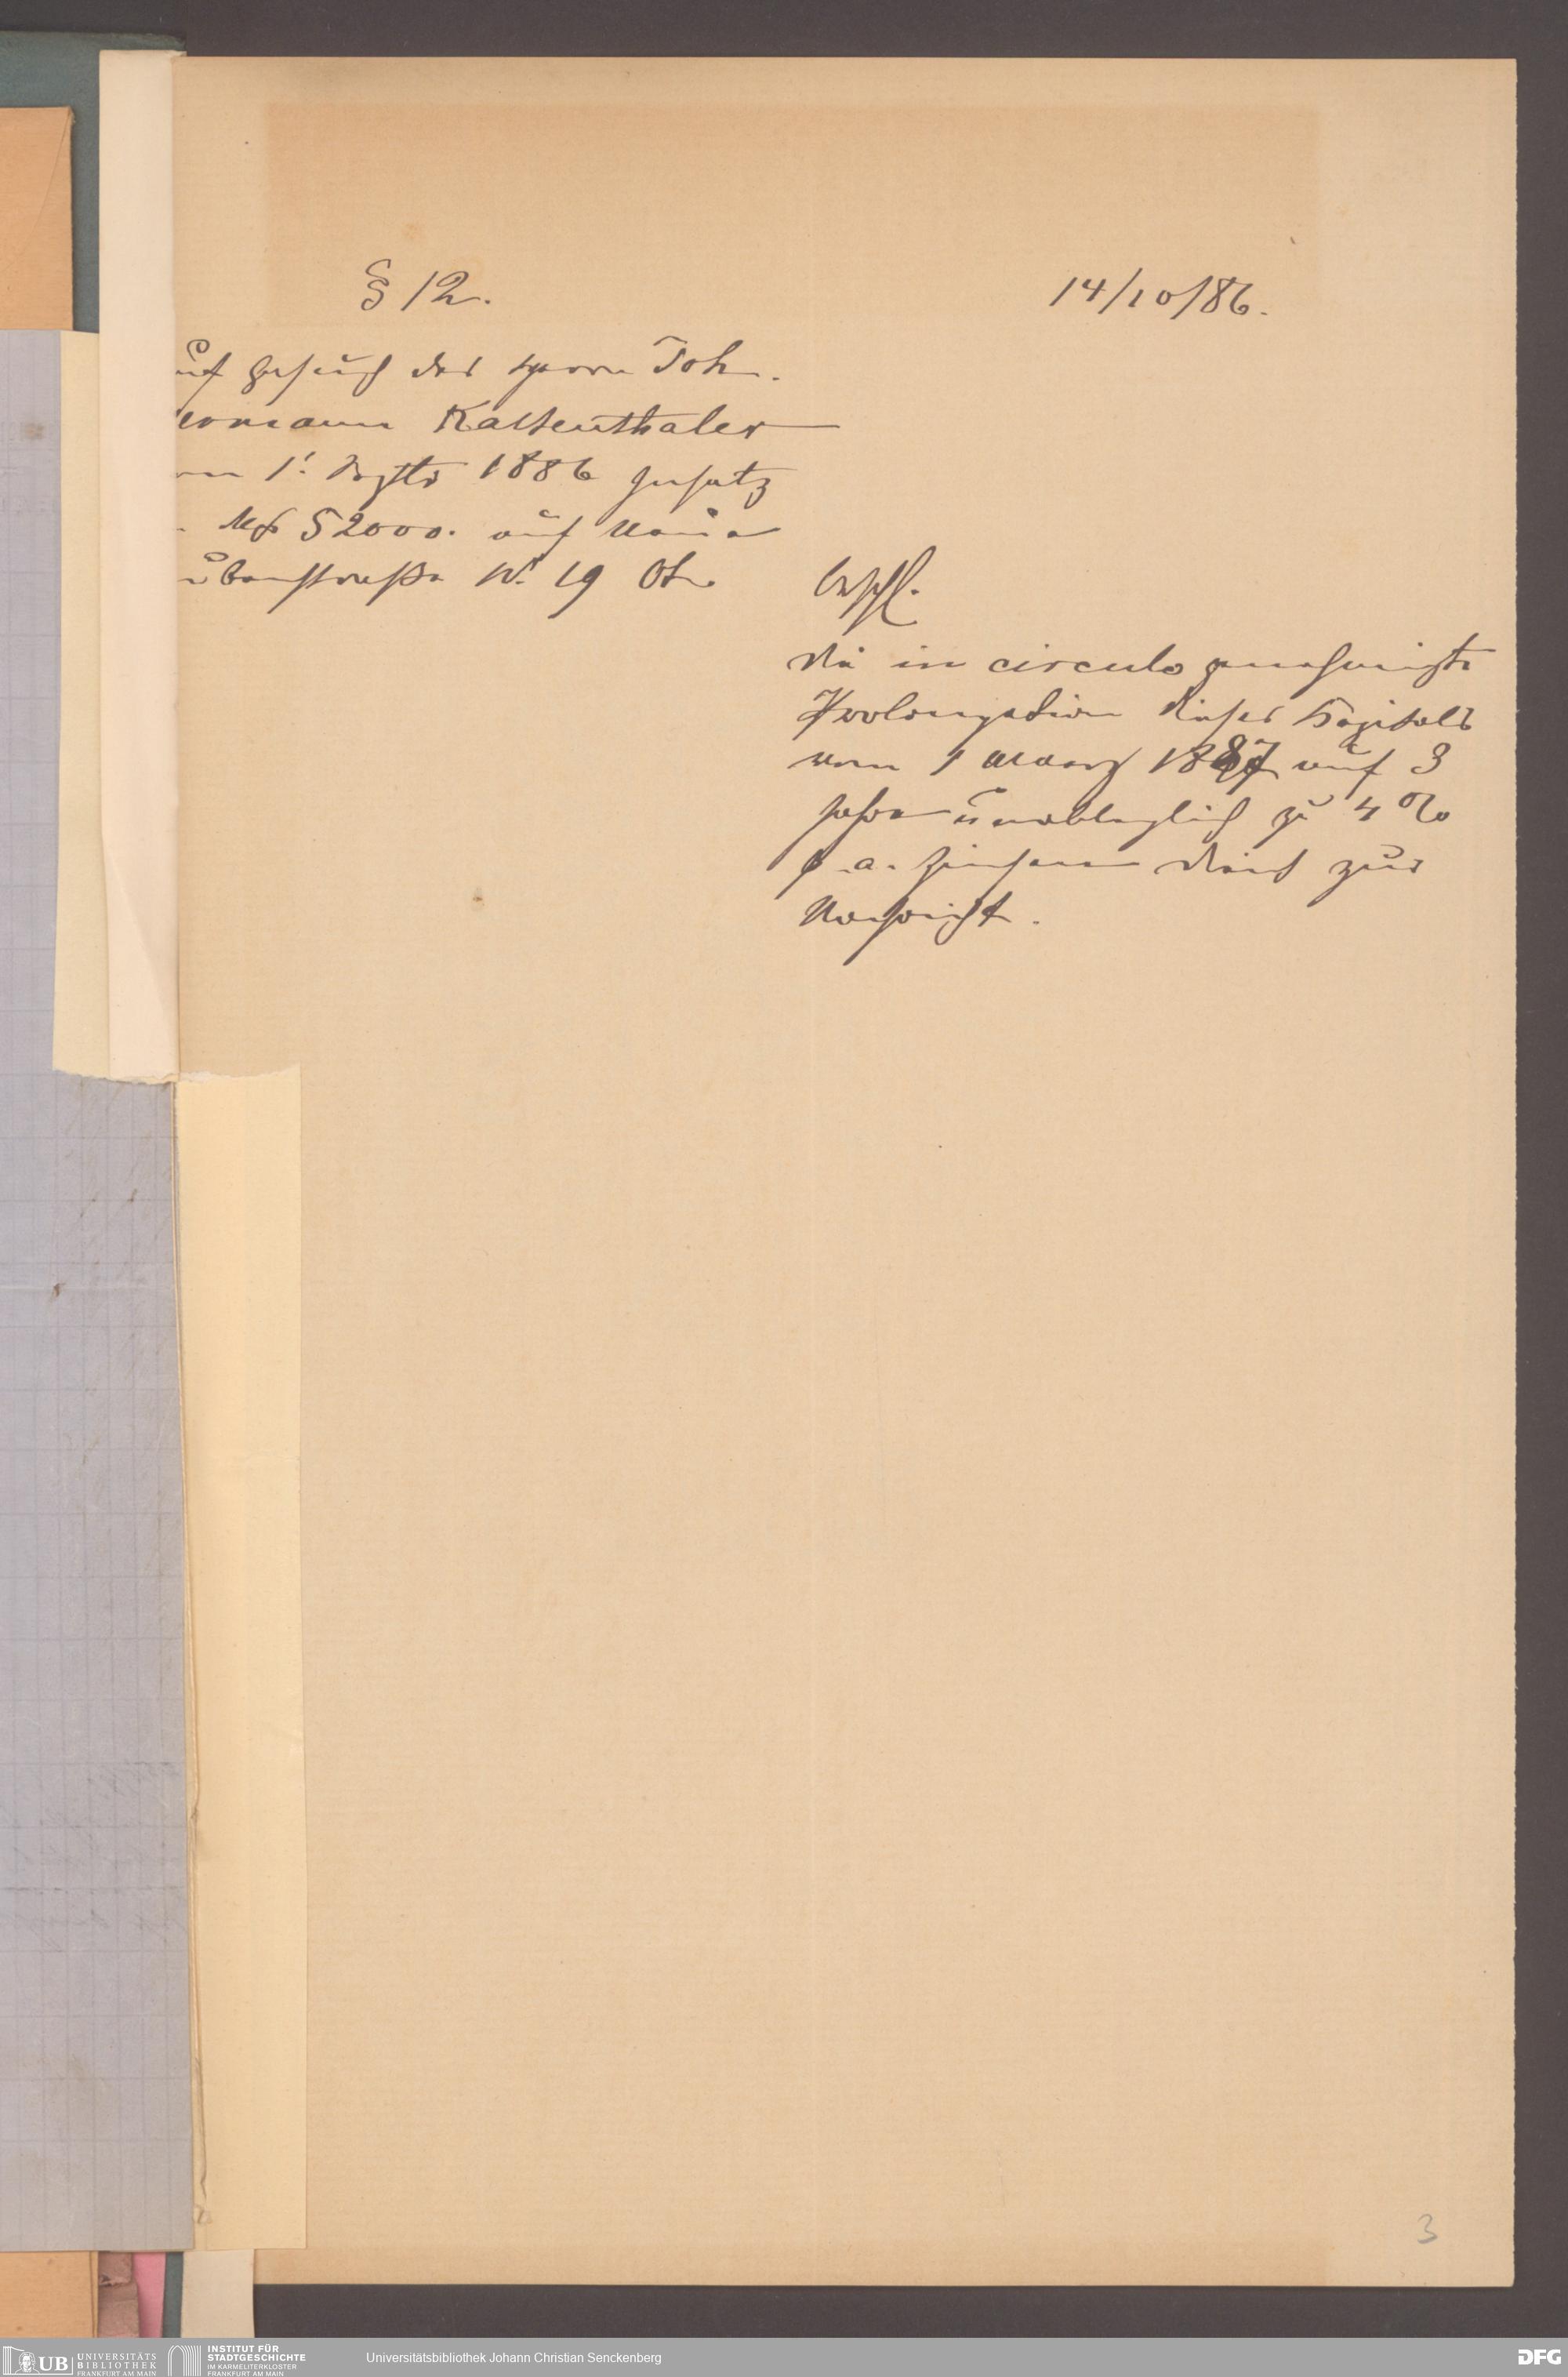 § 12.
14/10/86.
uf Gesuch des Herrn Joh.
ermann Kaltenthaler
m 1. Septbr 1886 Insatz
Mk 52000. auf
straße No. 19
Beschl.
die in circulo genehmigte
Prolongation dieses Kapitals
vom 1 Maerz 1887 auf 3
Jahre unableglich zu 4 %
p. a. Zinsen dient zur
Nachricht.
3
UB UNIVERSITÄTS
BIBLIOTHEK
FRANKFURT AM MAIN
INSTITUT FÜR
STADTGESCHICHTE
IM KARMELITERKLOSTER
FRANKFURT AM MAIN
Universitätsbibliothek Johann Christian Senckenberg
DFG